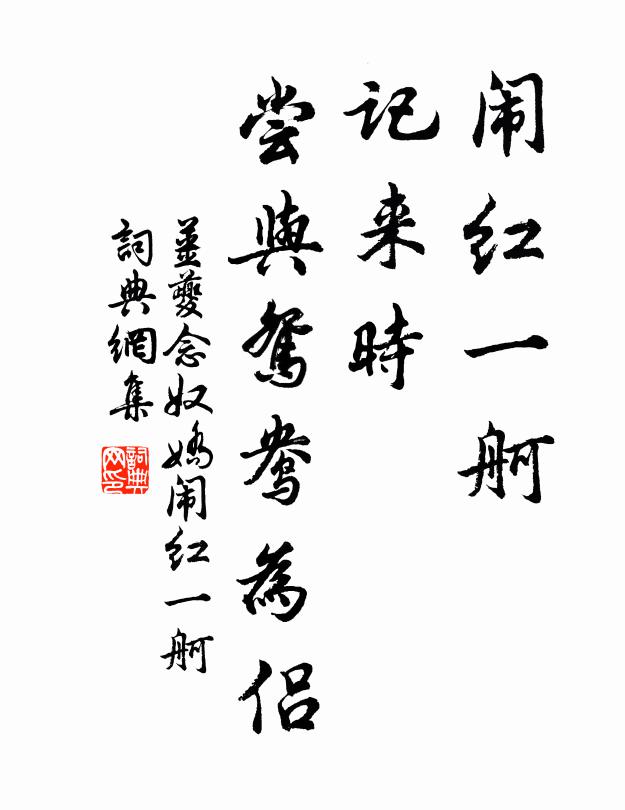 闹红一舸
记来時
尝與鸳鸯為侣
姜夔念奴嬌闹红一舸
詞典網集
詞典网印